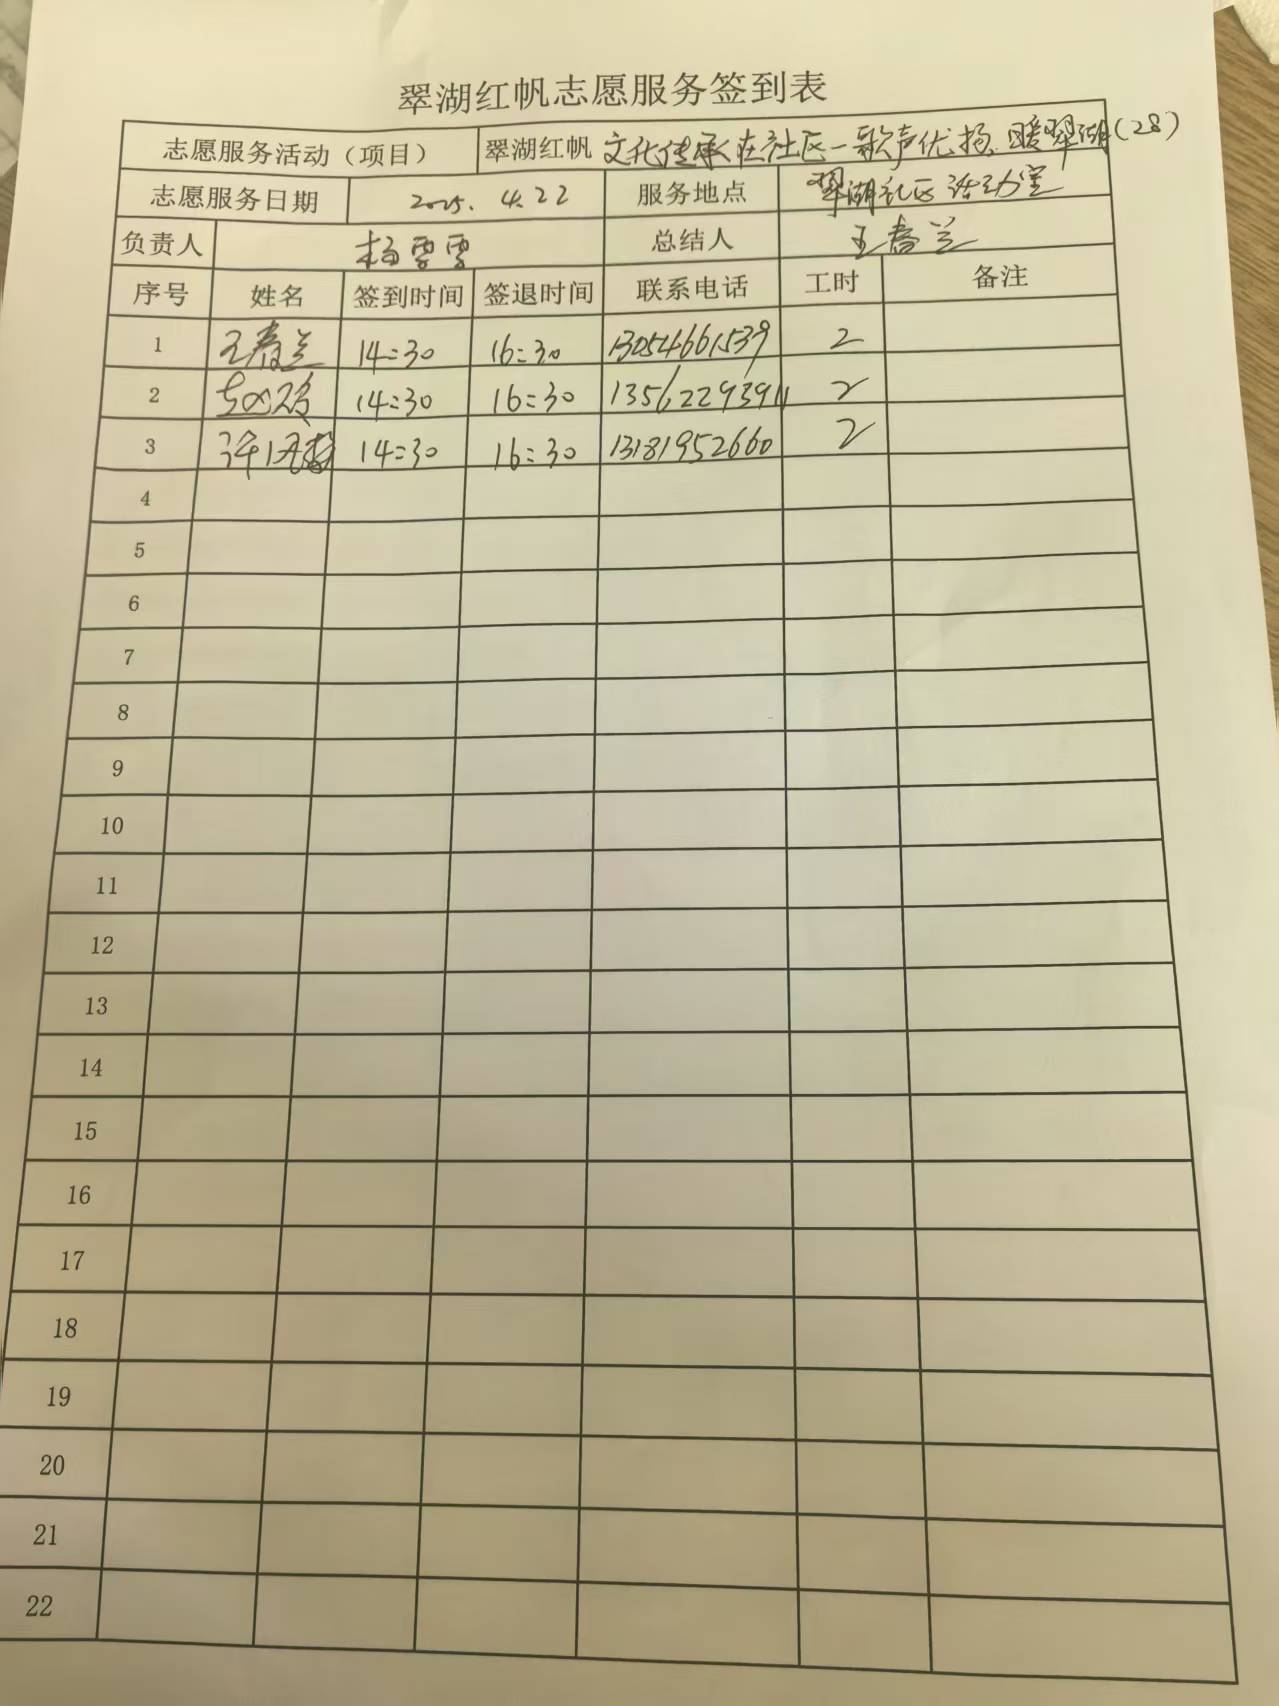 翠湖红帆志愿服务签到表
志愿服务活动（项目） 翠湖红帆 文化传承在社区一歌声优扬.暖翠湖(28)
志愿服务日期 2025. 4.22 服务地点 翠湖社区活动室
负责人 杨雪雪 总结人 王春兰
序号 姓名 签到时间 签退时间 联系电话 工时 备注
1 王春兰 14:30 16:30 13054661539 2
2 14:30 16:30 2
3 14:30 16:30 13181952660 2
4
5
6
7
8
9
10
11
12
13
14
15
16
17
18
19
20
21
22